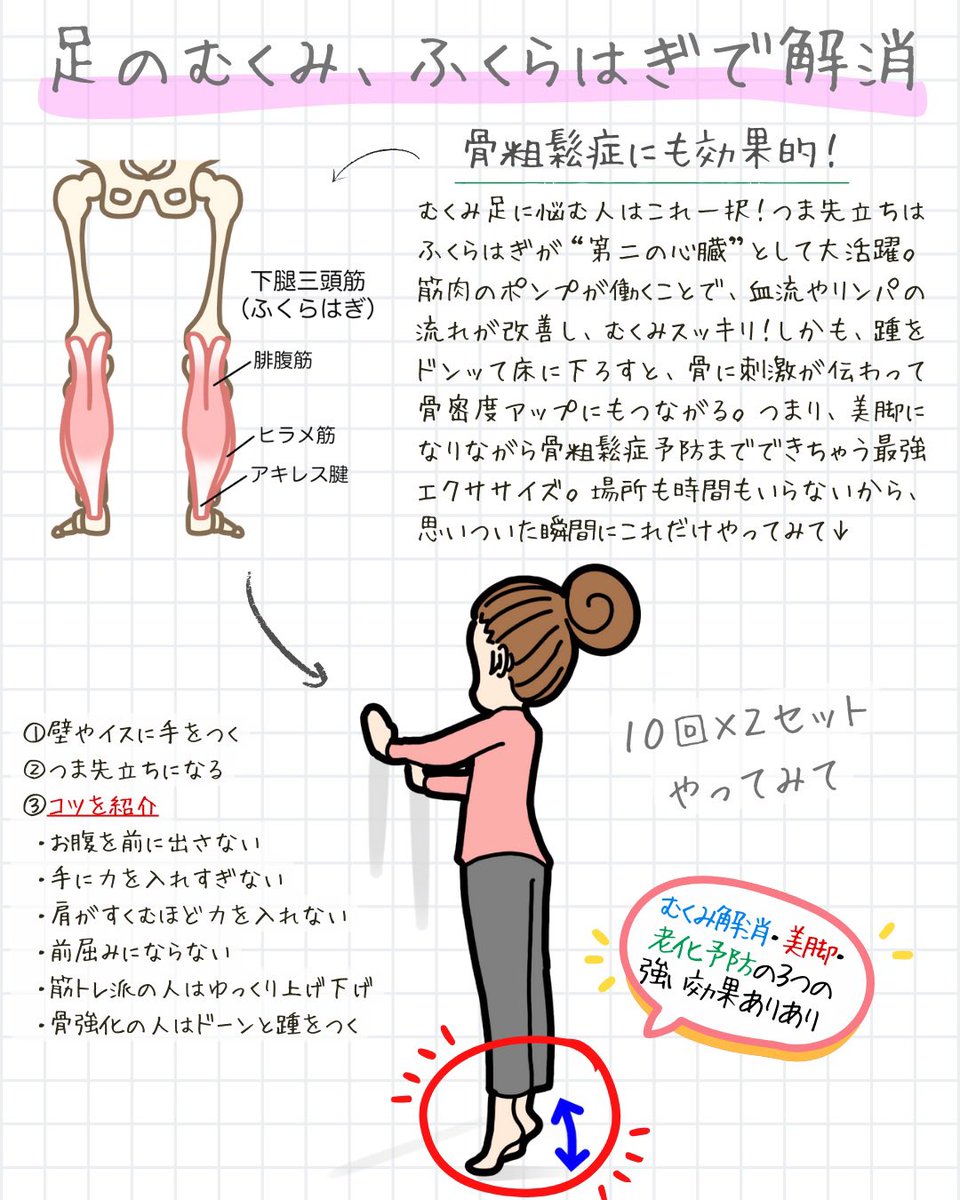 足のむくみ、ふくらはぎで解消
骨粗鬆症にも効果的！
むくみ足に悩む人はこれ一択！つま先立ちは
ふくらはぎが“第二の心臓”として大活躍。
筋肉のポンプが働くことで、血流やリンパの
流れが改善し、むくみスッキリ！しかも、踵を
ドンッて床に下ろすと、骨に刺激が伝わって
骨密度アップにもつながる。つまり、美脚に
なりながら骨粗鬆症予防までできちゃう最強
エクササイズ。場所も時間もいらないから、
思いついた瞬間にこれだけやってみて↓
下腿三頭筋
（ふくらはぎ）
腓腹筋
ヒラメ筋
アキレス腱
①壁やイスに手をつく
②つま先立ちになる
③コツを紹介
・お腹を前に出さない
・手に力を入れすぎない
・肩がすくむほど力を入れない
・前屈みにならない
・筋トレ派の人はゆっくり上げ下げ
・骨強化の人はドーンと踵をつく
10回×2セット
やってみて
むくみ解消・美脚・
老化予防の3つの
強い効果ありあり